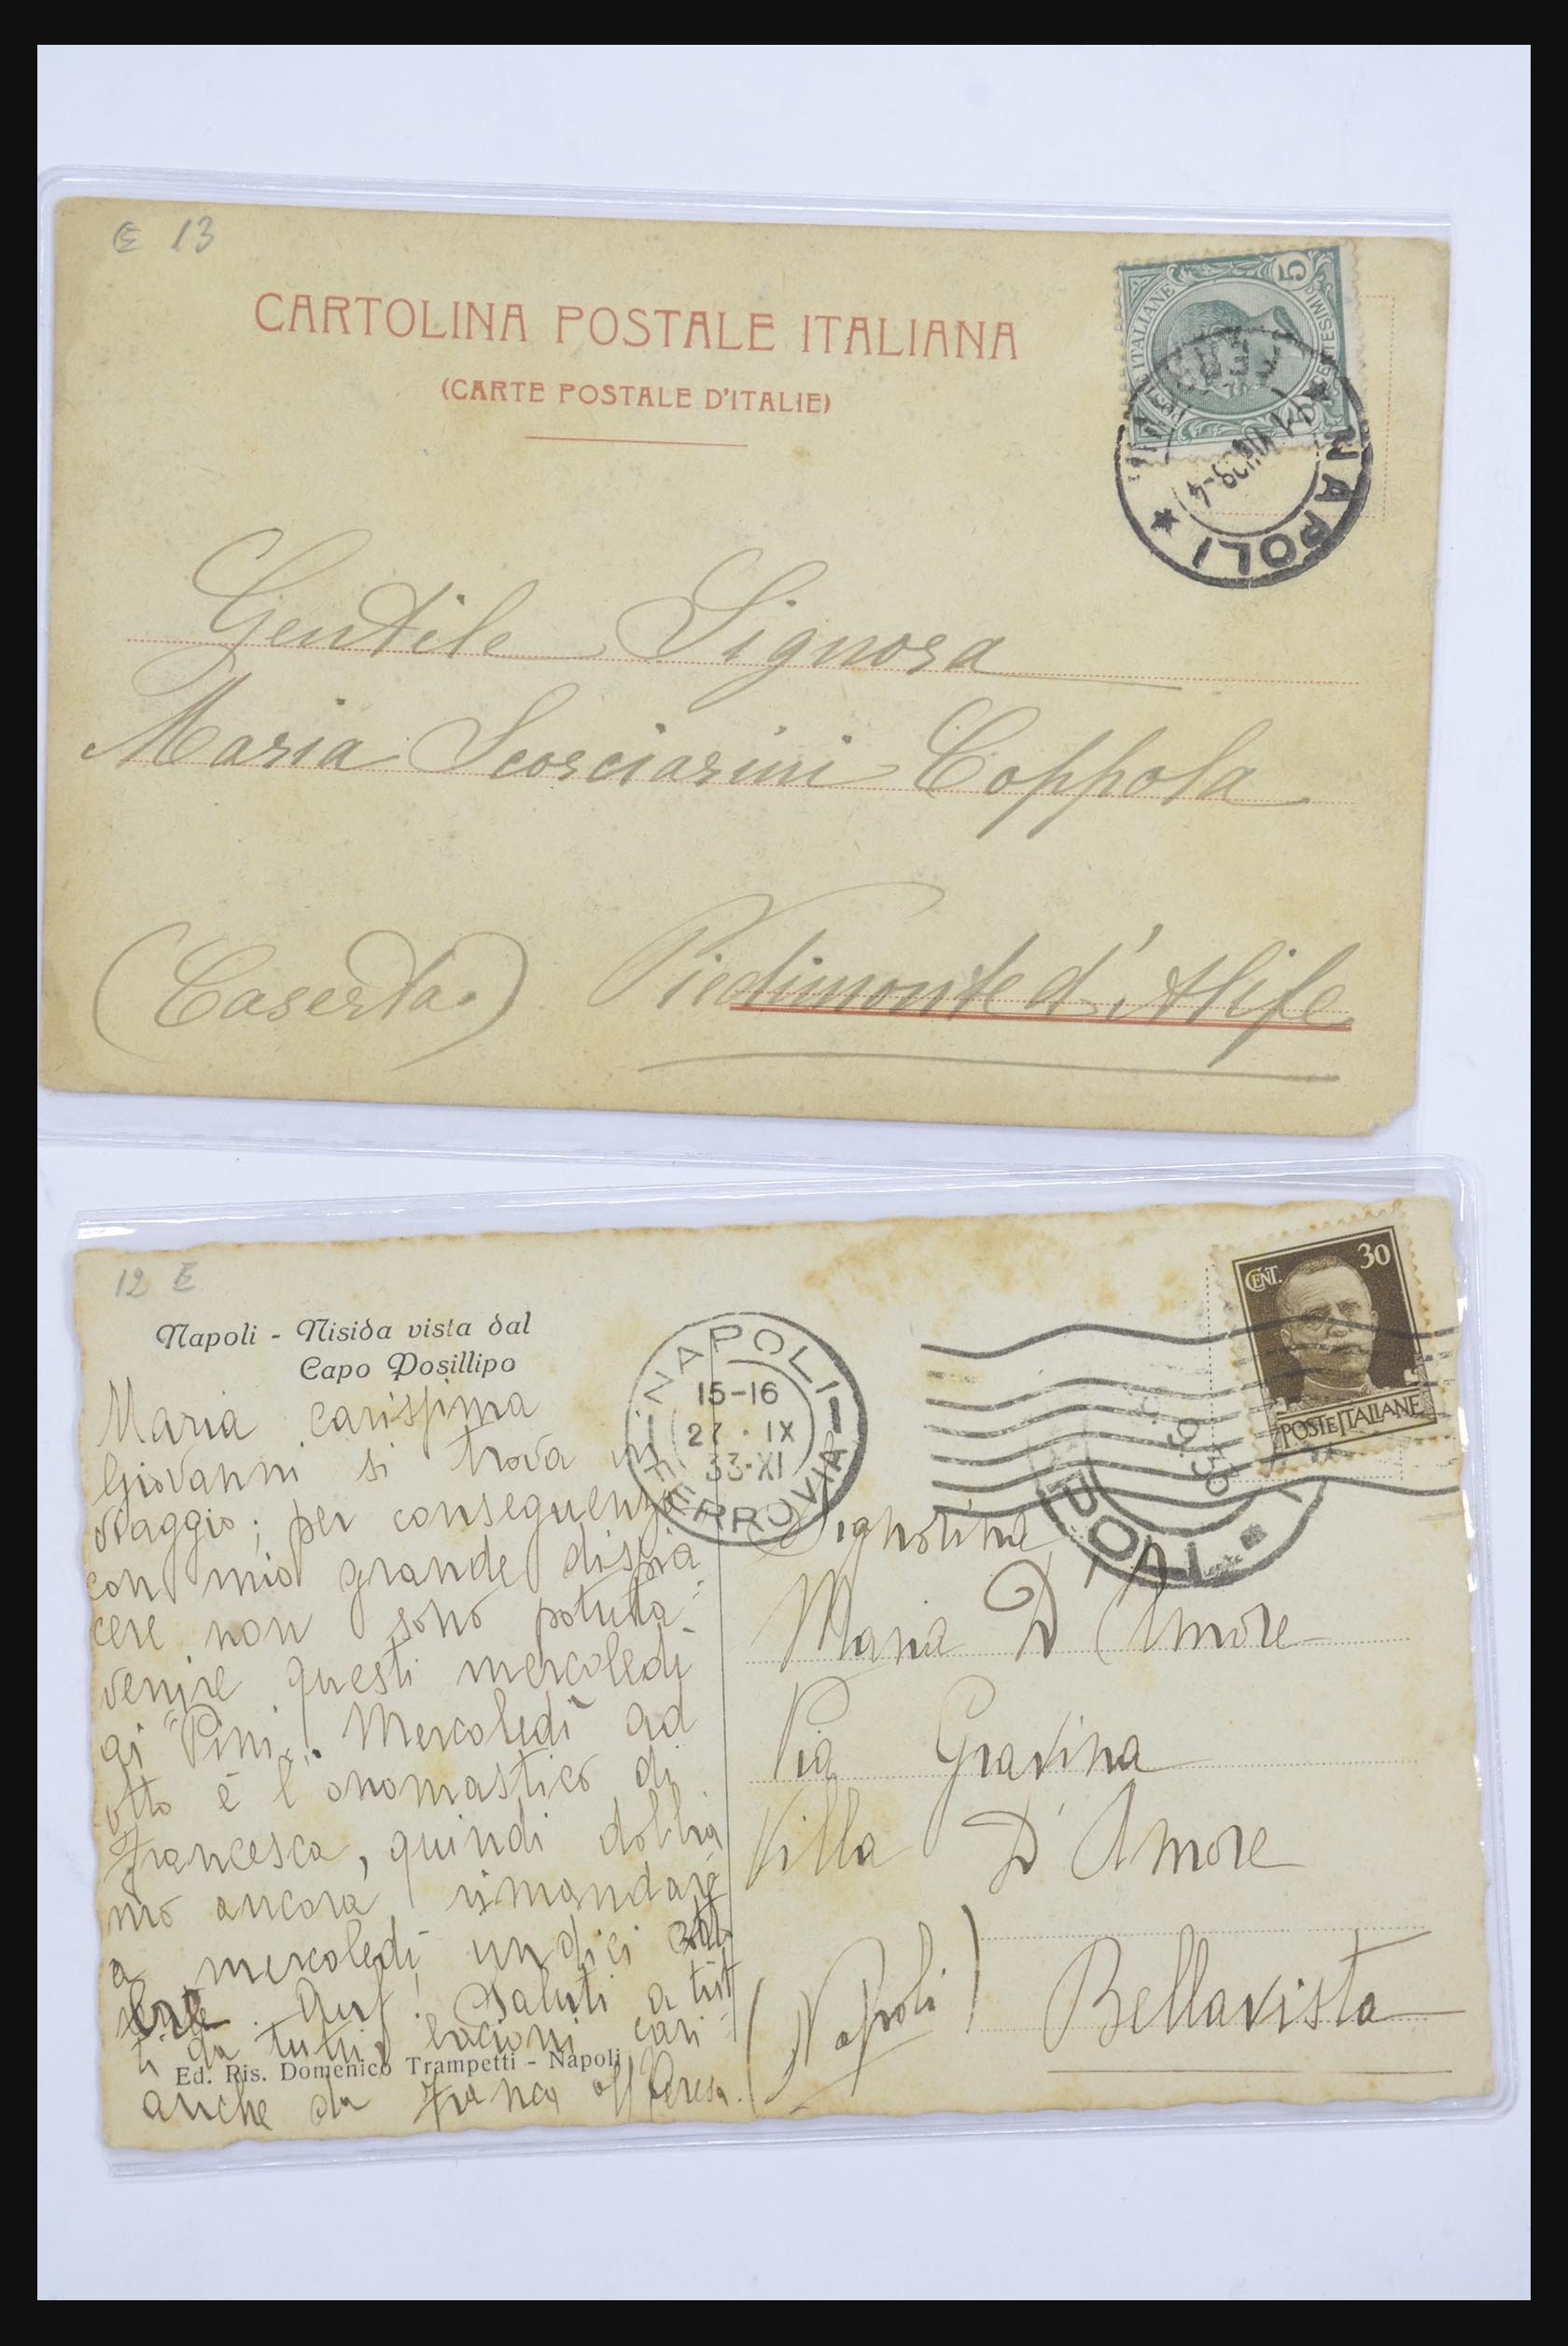 E 13
CARTOLINA POSTALE ITALIANA
(CARTE POSTALE D'ITALIE)
POSTE ITALIANE
5
NAPOLI
Gentile Signora
Maria Scorciarini Coppola
(Caserta) Piedimonte d'Alife
12 E
Napoli - Nisida vista dal
Capo Posillipo
Maria carissima
Giovanni si trova in
viaggio; per conseguenza
con mio grande dispia
cere non sono potuta
venire questi mercoledi
ai "Pini". Mercoledì ad
otto è l'onomastico di
Francesca, quindi dobbia
mo ancora rimandare
a mercoledì undici
Auf! Saluti a tut
ti da tutti, bacioni cari
anche da Franca aff Teresa.
Ed. Ris. Domenico Trampetti - Napoli
NAPOLI
15-16
27 · IX
33·XI
FERROVIA
CENT. 30
POSTE ITALIANE
POLI
Signorina
Maria D'Amore
Via Gravina
Villa D'Amore
(Napoli) Bellavista